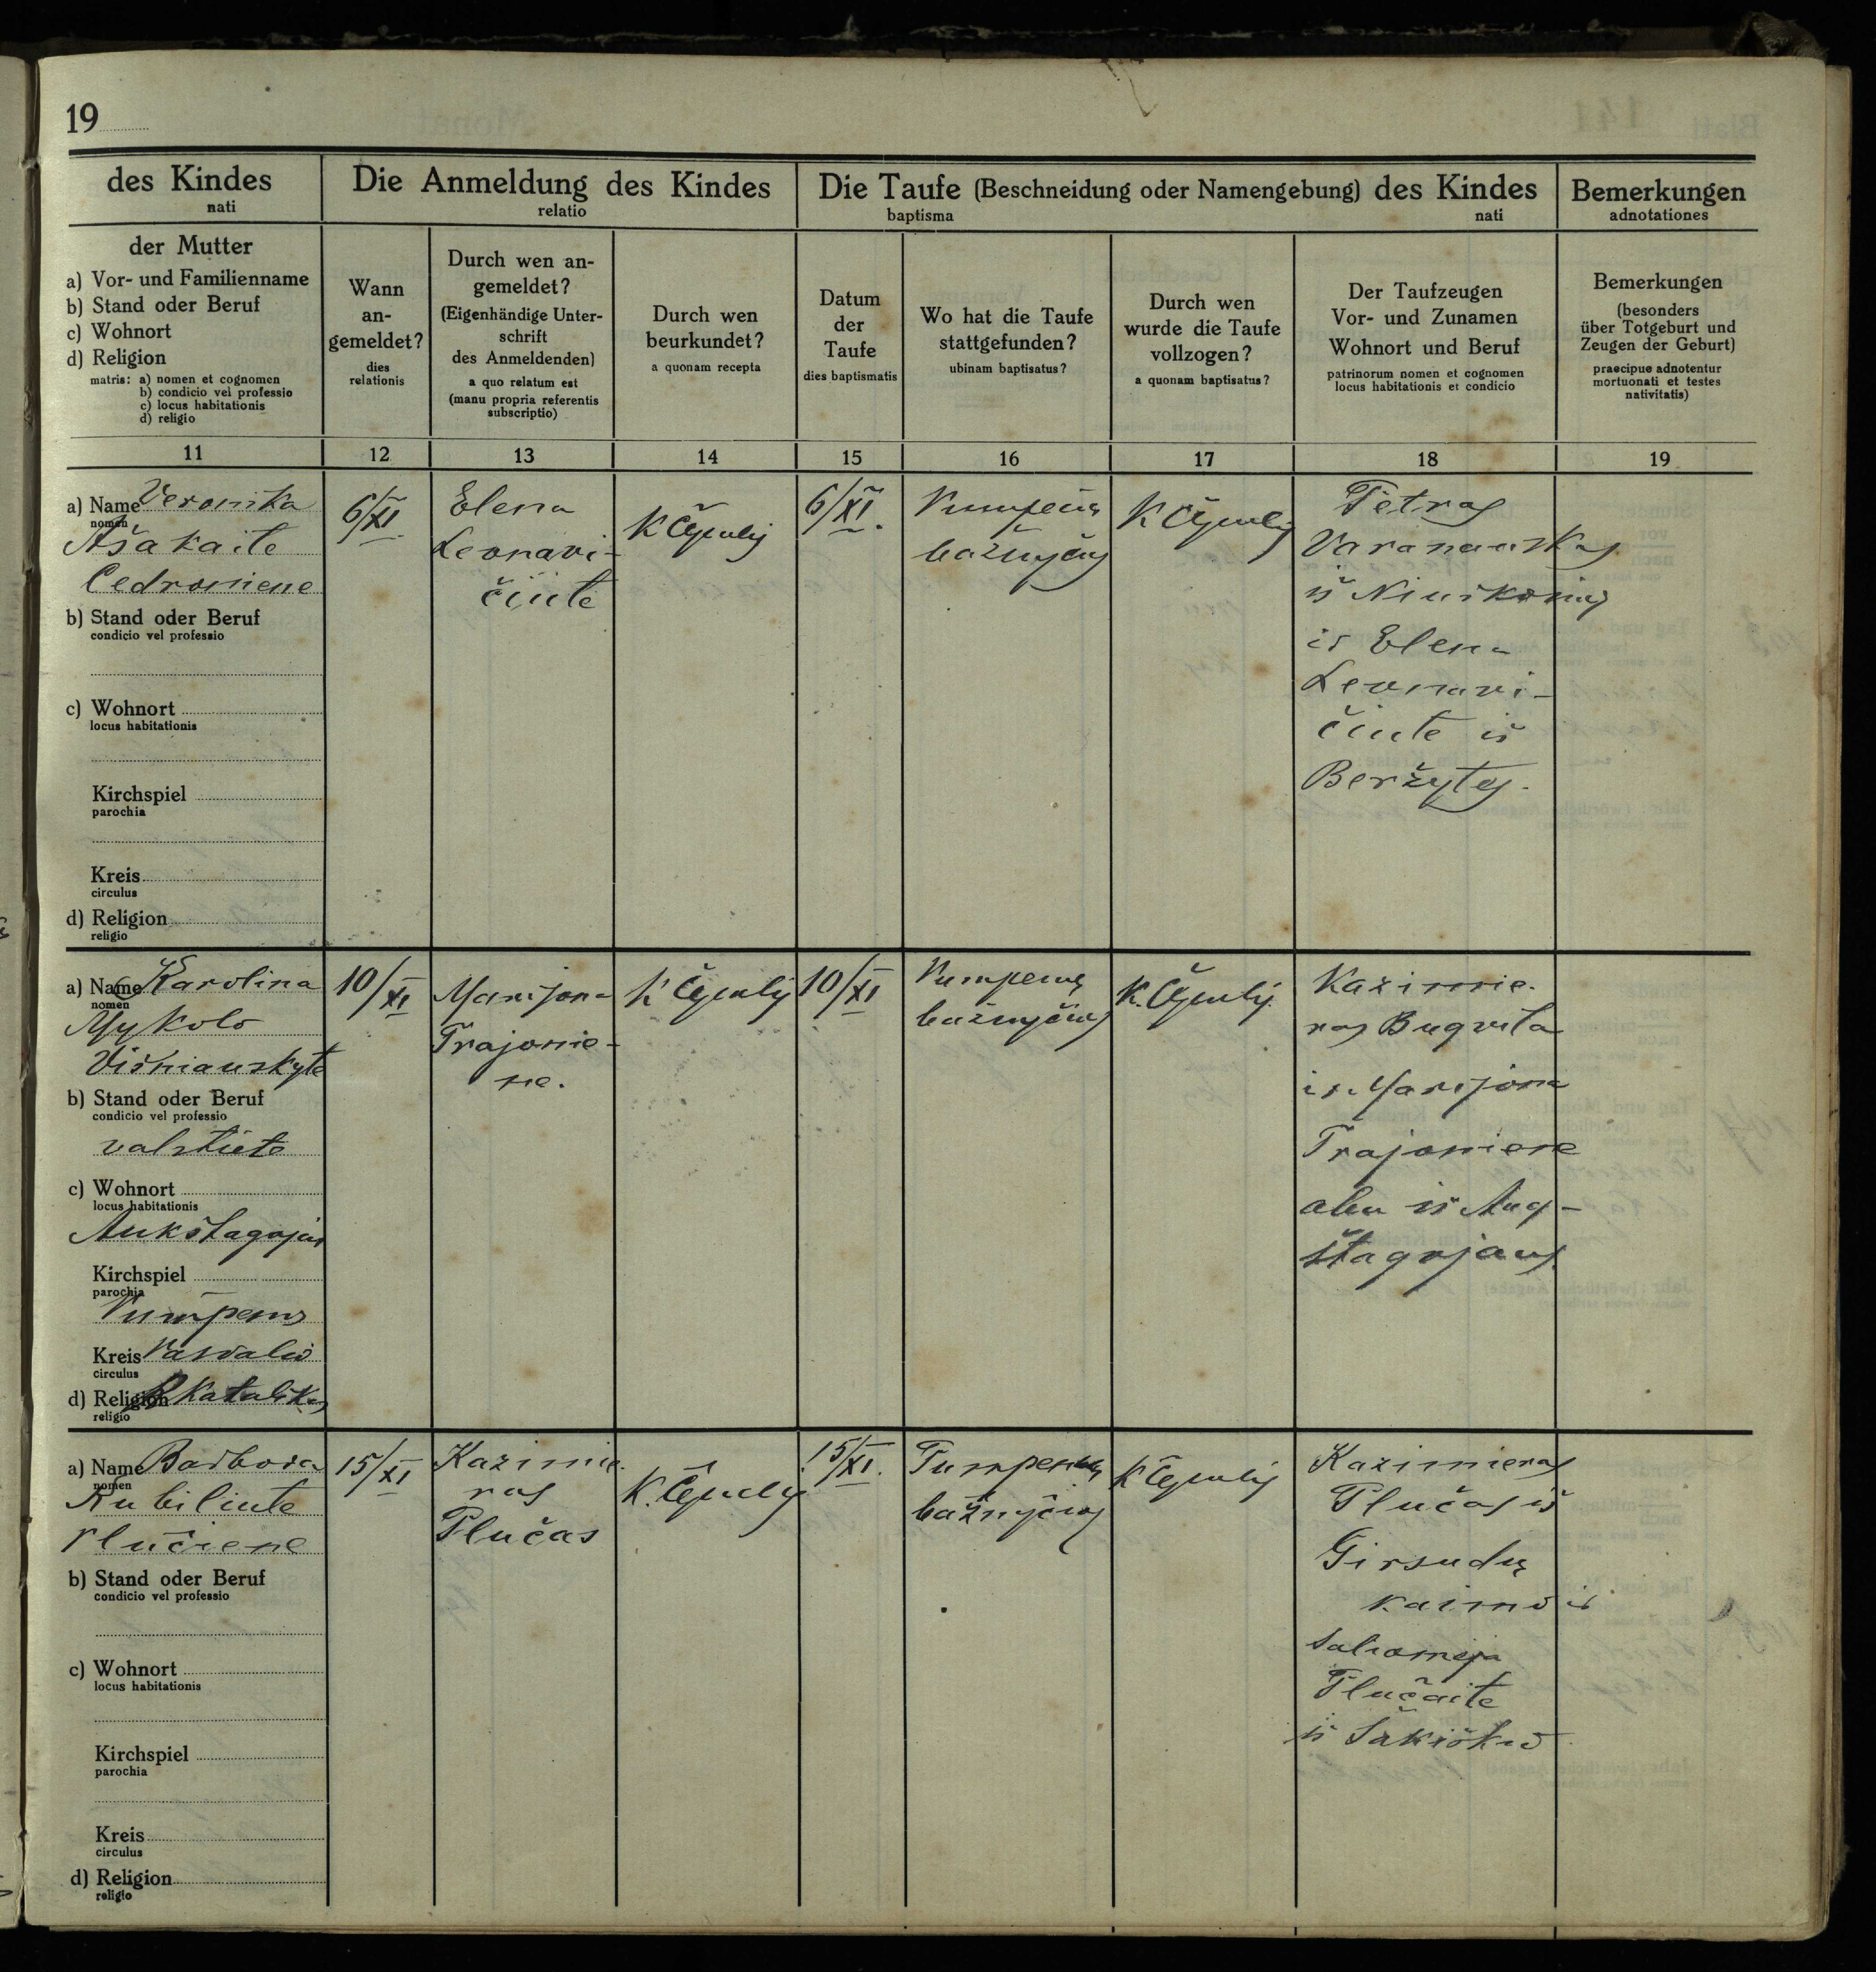 19
des Kindes
nati
Die Anmeldung des Kindes
relatio
Die Taufe (Beschneidung oder Namengebung) des Kindes
baptisma nati
Bemerkungen
adnotationes
der Mutter
a) Vor- und Familienname
b) Stand oder Beruf
c) Wohnort
d) Religion
matris: a) nomen et cognomen
b) condicio vel professio
c) locus habitationis
d) religio
Wann
an-
gemeldet?
dies
relationis
Durch wen an-
gemeldet?
(Eigenhändige Unter-
schrift
des Anmeldenden)
a quo relatum est
(manu propria referentis
subscriptio)
Durch wen
beurkundet?
a quonam recepta
Datum
der
Taufe
dies baptismatis
Wo hat die Taufe
stattgefunden?
ubinam baptisatus?
Durch wen
wurde die Taufe
vollzogen?
a quonam baptisatus?
Der Taufzeugen
Vor- und Zunamen
Wohnort und Beruf
patrinorum nomen et cognomen
locus habitationis et condicio
Bemerkungen
(besonders
über Totgeburt und
Zeugen der Geburt)
praecipue adnotentur
mortuonati et testes
nativitatis)
11 12 13 14 15 16 17 18 19
a) Name Veronika
nomen
Ašakaite
Cedroniene
b) Stand oder Beruf
condicio vel professio
c) Wohnort
locus habitationis
Kirchspiel
parochia
Kreis
circulus
d) Religion
religio
6/XI
Elena
Leonavi-
čiute
K
6/XI.
bažnyčioj
K
Petras
Varanauskas
iš
ir Elena
Leonavi-
čiute iš
Beržytes.
a) Name Karolina
nomen
Mykolo
Višniauskyte
b) Stand oder Beruf
condicio vel professio
valstiete
c) Wohnort
locus habitationis
Aukštagojus
Kirchspiel
parochia
Kreis
circulus
d) Religion R Katalikes
religio
10/XI
Marijona
Trajonie-
ne.
K
10/XI
bažnyčioj
K.
Kazimie-
ras Bugvila
ir Marijona
Trajoniene
abu iš Aug-
štagojaus
a) Name Barbora
nomen
Kubiliute
Plučiene
b) Stand oder Beruf
condicio vel professio
c) Wohnort
locus habitationis
Kirchspiel
parochia
Kreis
circulus
d) Religion
religio
15/XI
Kazimie-
ras
Plučas
K.
15/XI.
bažnyčioj
K
Kazimieras
Plučas iš
Girsudų
kaimo ir
Saliomeja
Plučaite
iš